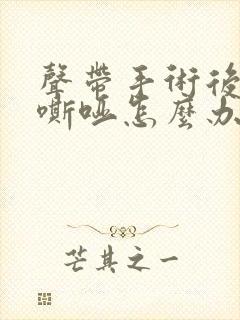 聲帶手術後
嘶啞怎麼办
芒其之一